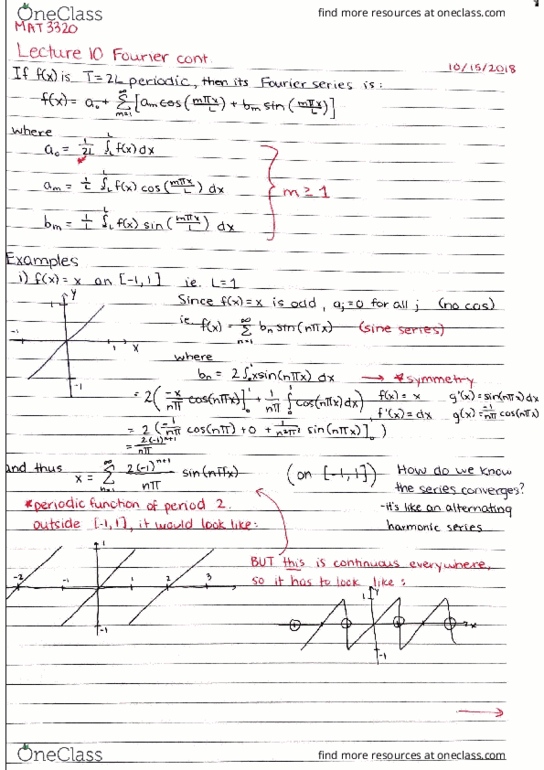 OneClass
find more resources at oneclass.com
MAT3320
Lecture 10 Fourier cont.
10/15/2018
If f(x) is T=2L periodic, then its Fourier series is:
f(x) = a₀ + ∞ Σ m=1 [aₘ cos(mπx/L) + bₘ sin(mπx/L)]
where
a₀ = 1/2L ∫ᴸ₋L f(x) dx
aₘ = 1/L ∫ᴸ₋L f(x) cos(mπx/L) dx
m ≥ 1
bₘ = 1/L ∫ᴸ₋L f(x) sin(mπx/L) dx
Examples
i) f(x) = x on [-1,1] ie. L=1
Since f(x)=x is odd, aⱼ=0 for all j (no cos)
ie f(x) = ∞ Σ n=1 bₙ sin(nπx) (sine series)
where
bₙ = 2∫¹₀ x sin(nπx) dx → *symmetry
= 2(-x/nπ cos(nπx)]¹₀ + 1/nπ ∫¹₀ cos(nπx) dx) f(x) = x g'(x) = sin(nπx) dx
f'(x) = dx g(x) = -1/nπ cos(nπx)
= 2(-1/nπ cos(nπ) + 0 + 1/n²π² sin(nπx)]¹₀)
= 2(-1)ⁿ⁺¹/nπ
and thus x = ∞ Σ n=1 2(-1)ⁿ⁺¹/nπ sin(nπx) (on [-1,1])
How do we know
the series converges?
-it's like an alternating
harmonic series
*periodic function of period 2.
outside [-1,1], it would look like:
BUT this is continuous everywhere,
so it has to look like:
OneClass
find more resources at oneclass.com